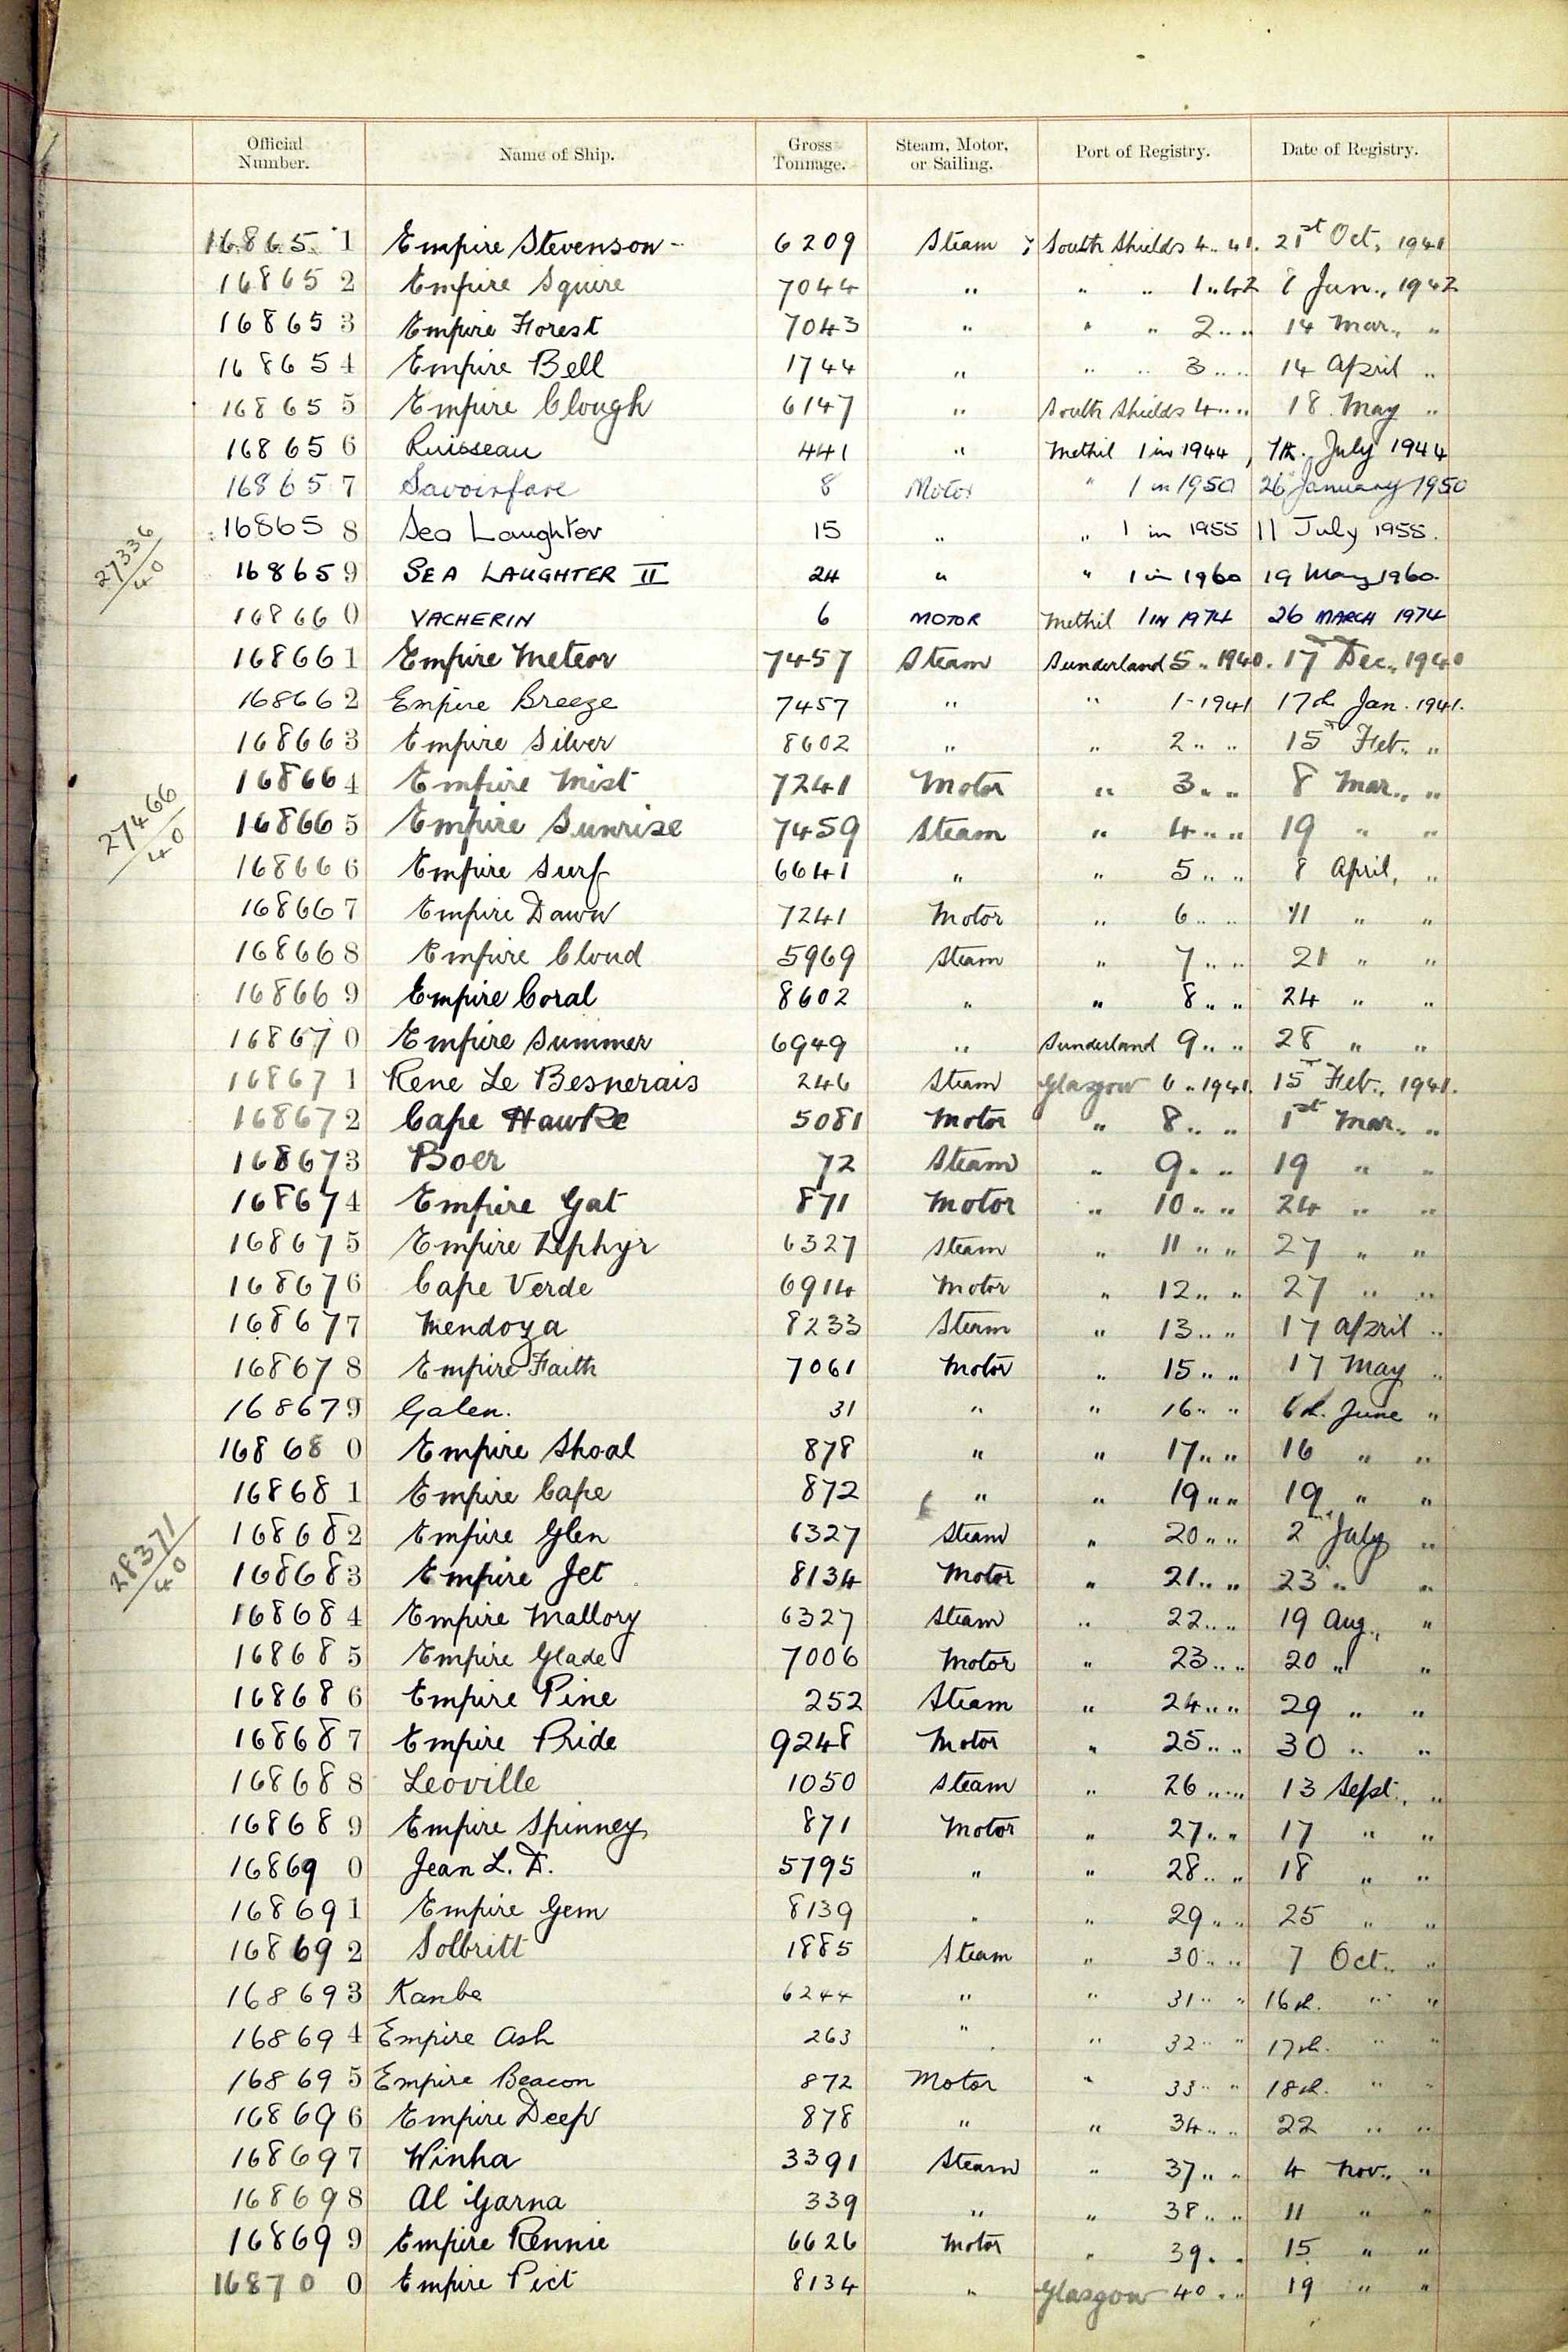 Official Number. Name of Ship. Gross Tonnage. Steam, Motor, or Sailing. Port of Registry. Date of Registry.
168651 Empire Stevenson - 6209 Steam South Shields 4 .. 41. 21st Oct, 1941
168652 Empire Squire 7044 " " " 1 .. 42 8 Jan., 1942
168653 Empire Forest 7043 " " " 2 .. .. 14 Mar., "
168654 Empire Bell 1744 " " " 3 .. .. 14 April "
168655 Empire Clough 6147 " South Shields 4 .. .. 18 May "
168656 Ruisseau 441 " Methil 1 in 1944, 7th. July 1944
168657 Savoirfare 8 Motor " 1 in 1950 26 January 1950
27336/40
168658 Sea Laughter 15 " " 1 in 1955 11 July 1955.
168659 SEA LAUGHTER II 24 " " 1 in 1960 19 May 1960.
168660 VACHERIN 6 MOTOR Methil 1 IN 1974 26 MARCH 1974
168661 Empire Meteor 7457 Steam Sunderland 5 .. 1940. 17 Dec., 1940
168662 Empire Breeze 7457 " " 1 - 1941 17th Jan. 1941.
168663 Empire Silver 8602 " " 2 .. .. 15 Feb. "
168664 Empire Mist 7241 Motor " 3 .. .. 8 Mar., "
27466/40
168665 Empire Sunrise 7459 Steam " 4 .. .. 19 " "
168666 Empire Surf 6641 " " 5 .. .. 8 April, "
168667 Empire Dawn 7241 Motor " 6 .. .. 11 " "
168668 Empire Cloud 5969 Steam " 7 .. .. 21 " "
168669 Empire Coral 8602 " " 8 .. .. 24 " "
168670 Empire Summer 6949 " Sunderland 9 .. .. 28 " "
168671 Rene Le Besnerais 246 Steam Glasgow 6 .. 1941. 15 Feb., 1941.
168672 Cape Hawke 5081 Motor " 8 .. .. 1st Mar. "
168673 Boer 72 Steam " 9 .. .. 19 " "
168674 Empire Gat 871 Motor " 10 .. .. 24 " "
168675 Empire Zephyr 6327 Steam " 11 .. .. 27 " "
168676 Cape Verde 6914 Motor " 12 .. .. 27 " "
168677 Mendoza 8233 Steam " 13 .. .. 17 April "
168678 Empire Faith 7061 Motor " 15 .. .. 17 May "
168679 Galen. 31 " " 16 .. .. 6th. June "
168680 Empire Shoal 878 " " 17 .. .. 16 " "
168681 Empire Cape 872 " " 19 .. .. 19 " "
28371/40
168682 Empire Glen 6327 Steam " 20 .. .. 2 July "
168683 Empire Jet 8134 Motor " 21 .. .. 23 " "
168684 Empire Mallory 6327 Steam " 22 .. .. 19 Aug., "
168685 Empire Glade 7006 Motor " 23 .. .. 20 " "
168686 Empire Pine 252 Steam " 24 .. .. 29 " "
168687 Empire Pride 9248 Motor " 25 .. .. 30 " "
168688 Leoville 1050 Steam " 26 .. .. 13 Sept., "
168689 Empire Spinney 871 Motor " 27 .. .. 17 " "
168690 Jean L. D. 5795 " " 28 .. .. 18 " "
168691 Empire Gem 8139 " " 29 .. .. 25 " "
168692 Solbritt 1885 Steam " 30 .. .. 7 Oct. "
168693 Kanbe 6244 " " 31 .. .. 16th. " "
168694 Empire Ash 263 " " 32 .. .. 17th. " "
168695 Empire Beacon 872 Motor " 33 .. .. 18th. " "
168696 Empire Deep 878 " " 34 .. .. 22 " "
168697 Winha 3391 Steam " 37 .. .. 4 Nov., "
168698 Al Garna 339 " " 38 .. .. 11 " "
168699 Empire Rennie 6626 Motor " 39 .. .. 15 " "
168700 Empire Pict 8134 " Glasgow 40 .. .. 19 " "